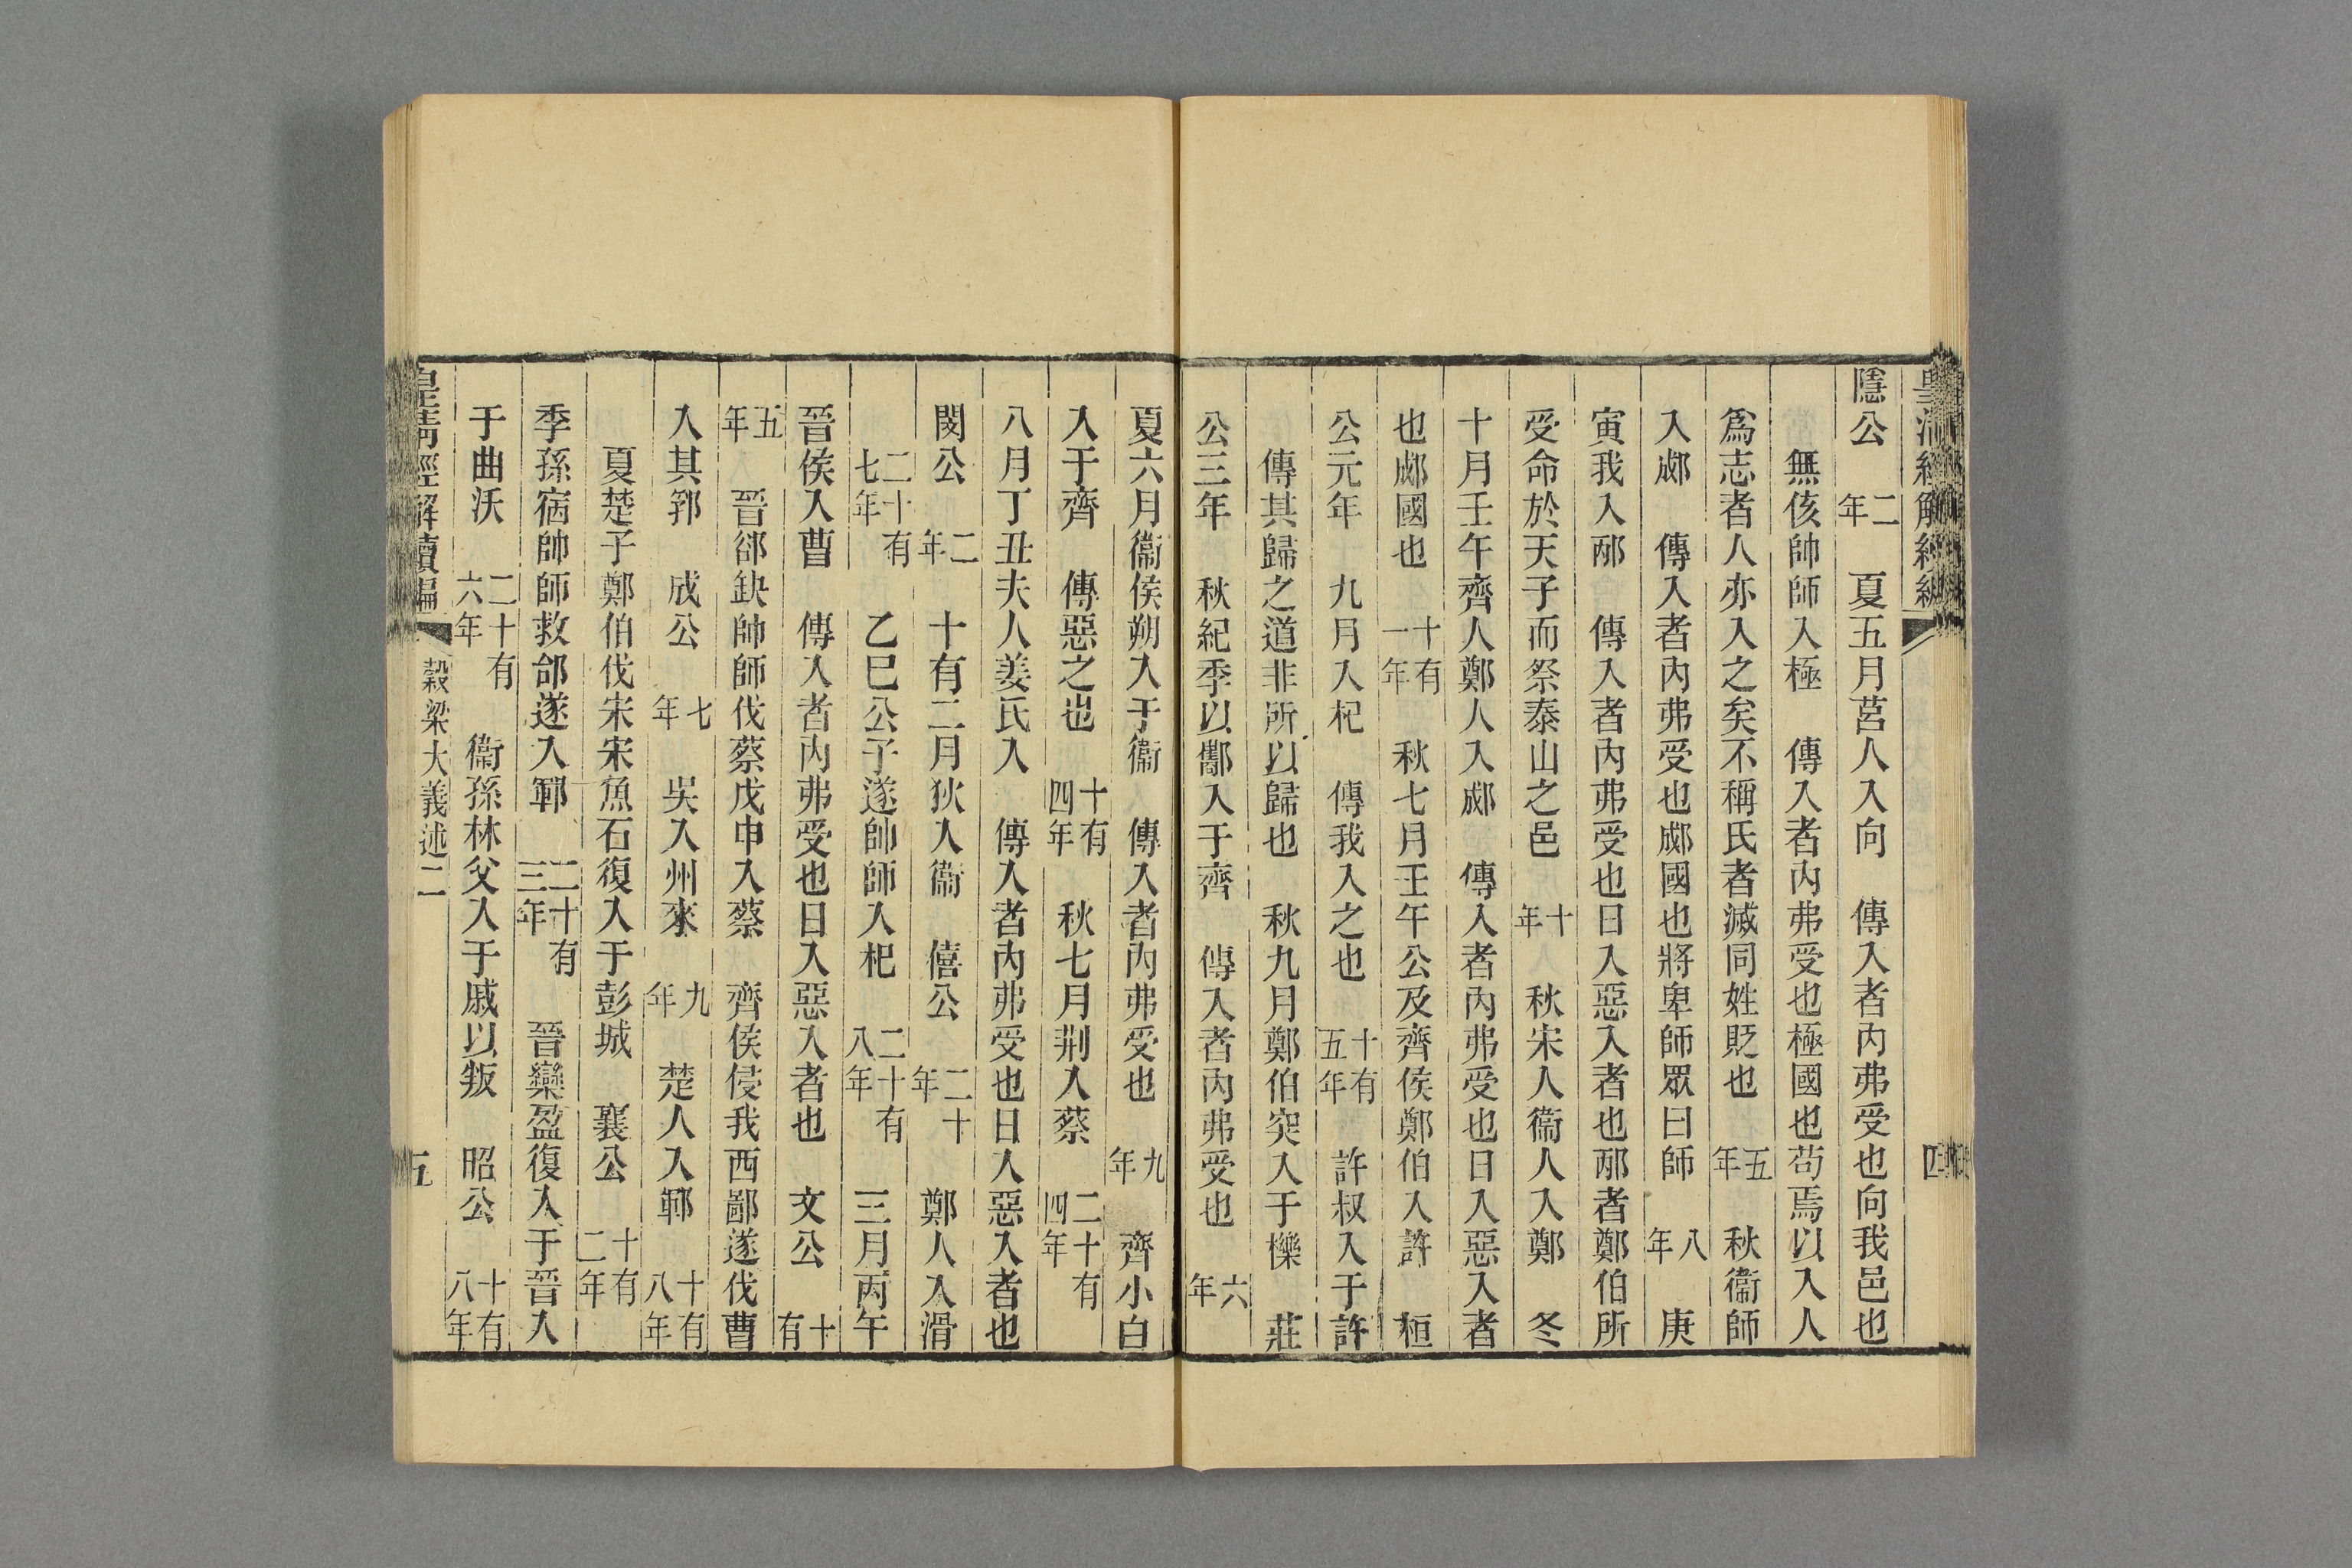 隱公　二年　夏五月莒人入向　傳入者內弗受也向我邑也
無侅帥師入極　傳入者內弗受也極國也苟焉以入人
爲志者人亦入之矣不稱氏者滅同姓貶也　五年　秋衞師
入郕　傳入者內弗受也郕國也將卑師眾曰師　八年　庚
寅我入邴　傳入者內弗受也日入惡入者也邴者鄭伯所
受命於天子而祭泰山之邑　十年　秋宋人衞人入鄭　冬
十月壬午齊人鄭人入郕　傳入者內弗受也日入惡入者
也郕國也　十有一年　秋七月壬午公及齊侯鄭伯入許　桓
公元年　九月入杞　傳我入之也　十有五年　許叔入于許
傳其歸之道非所以歸也　秋九月鄭伯突入于櫟　莊
公三年　秋紀季以酅入于齊　傳入者內弗受也　六年
夏六月衞侯朔入于衞　傳入者內弗受也　九年　齊小白
入于齊　傳惡之也　十有四年　秋七月荆入蔡　二十有四年
八月丁丑夫人姜氏入　傳入者內弗受也日入惡入者也
閔公　二年　十有二月狄入衞　僖公　二十年　鄭人入滑
二十有七年　乙巳公子遂帥師入杞　二十有八年　三月丙午
晉侯入曹　傳入者內弗受也日入惡入者也　文公　十有
五年　晉郤缺帥師伐蔡戊申入蔡　齊侯侵我西鄙遂伐曹
入其郛　成公　七年　吳入州來　九年　楚人入鄆　十有八年
夏楚子鄭伯伐宋宋魚石復入于彭城　襄公　十有二年
季孫宿帥師救邰遂入鄆　二十有三年　晉欒盈復入于晉入
于曲沃　二十有六年　衞孫林父入于戚以叛　昭公　十有八年
皇清經解續編　穀梁大義述二　五